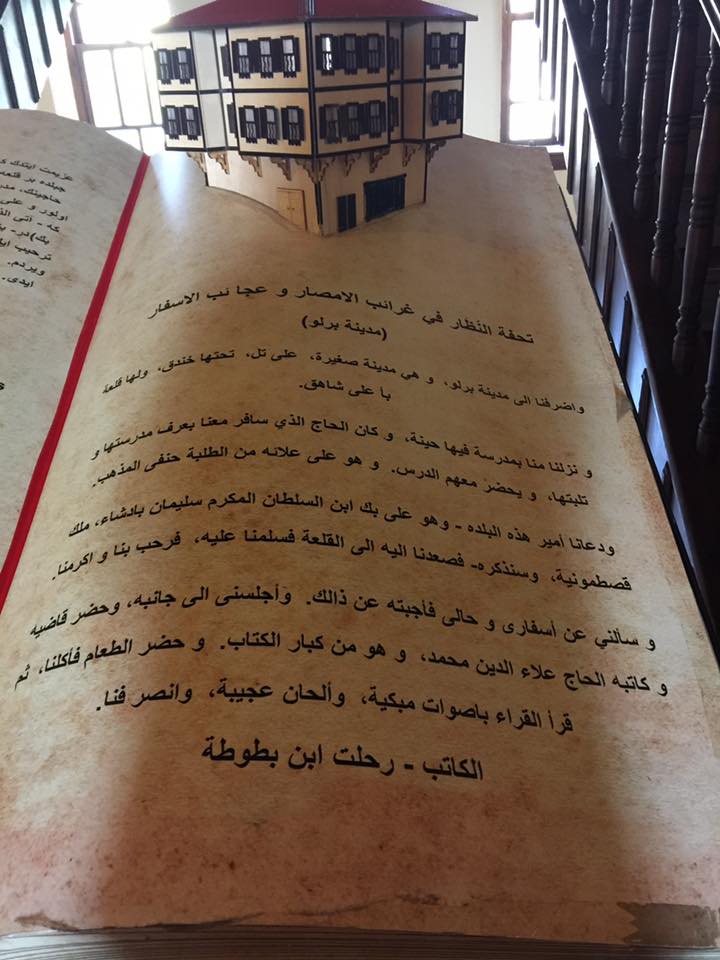 تحفة النظار في غرائب الامصار و عجا ئب الاسفار
(مدينة برلو)
واضرفنا الى مدينة برلو، و هي مدينة صغيرة، على تل، تحتها خندق، ولها قلعة
با على شاهق.
و نزلنا منا بمدرسة فيها حينة، و كان الحاج الذي سافر معنا يعرف مدرستها و
تلبتها، و يحضر معهم الدرس. و هو على علائه من الطلبة حنفى المذهب.
ودعانا أمير هذه البلده - وهو على بك ابن السلطان المكرم سليمان بادشاء، ملك
قصطمونية، وسنذكره- فصعدنا اليه الى القلعة فسلمنا عليه، فرحب بنا و اكرمنا.
و سألني عن أسفارى و حالى فأجبته عن ذالك. وأجلسنى الى جانبه، وحضر قاضيه
و كاتبه الحاج علاء الدين محمد، و هو من كبار الكتاب. و حضر الطعام فأكلنا، ثم
قرأ القراء باصوات مبكية، وألحان عجيبة، وانصر فنا.
الكاتب - رحلت ابن بطوطة
عزيمت ايتدك
جبلده بر قلعه
حاجينك، مدر
اولور و على
كه - اتى الق
بك)در- ين
ترحيب ايل
ويردم.
ايدى.